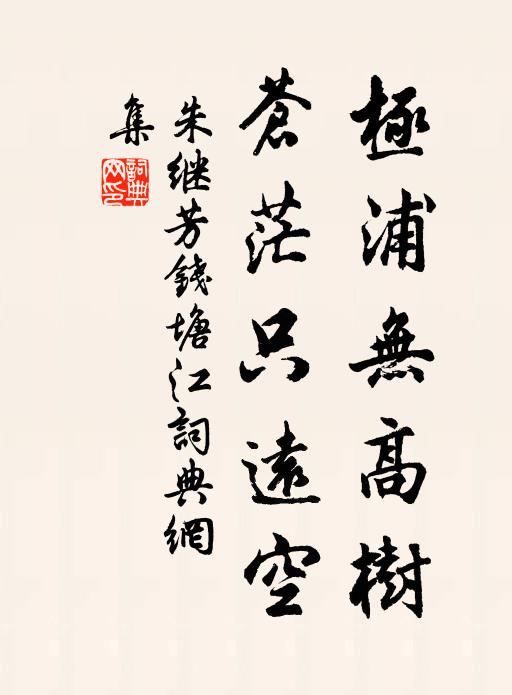 極浦無高樹
蒼茫只遠空
朱继芳錢塘江詞典網
集
詞典網印